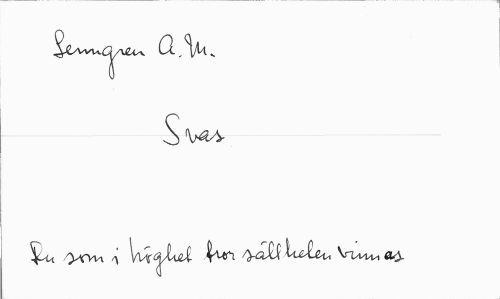 Lenngren A.M.
Svar
Du som i höghet tror sällheten vinnas